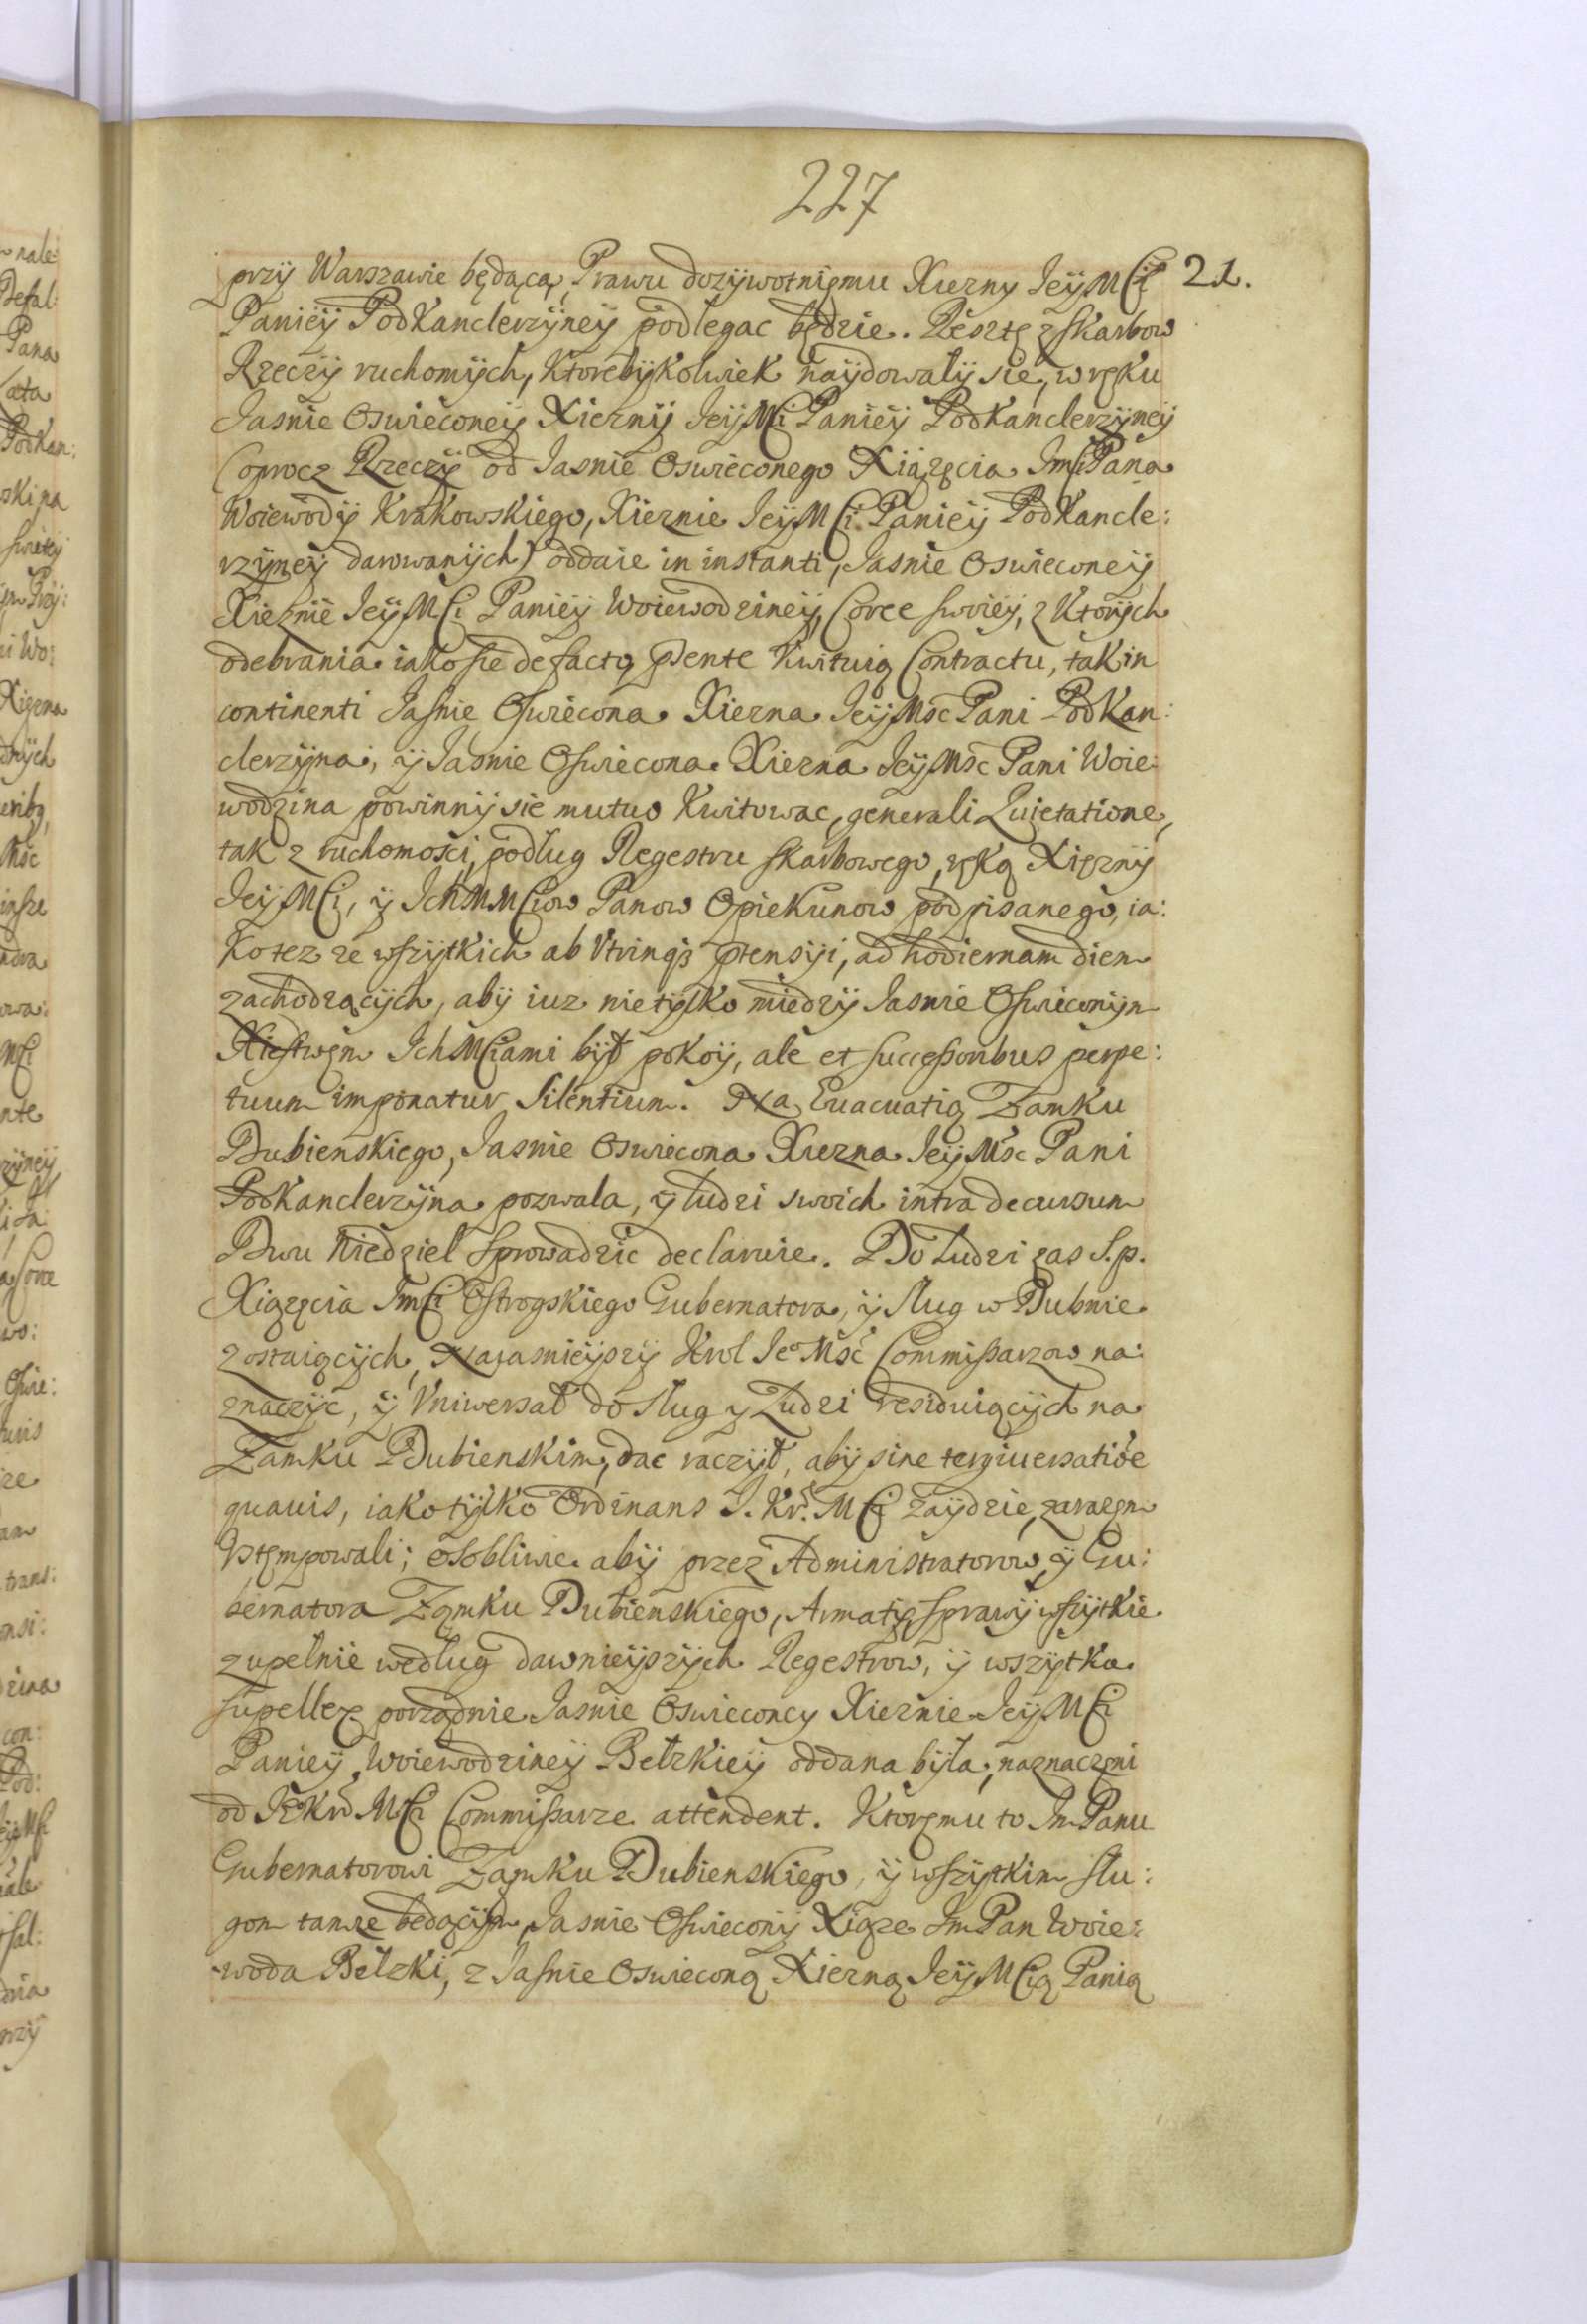 227
21.
przÿ Warszawie będąca, Prawu dozÿwotnięmu Xiezny JeÿMCi
Panieÿ PodKanclerzÿneÿ podlegac będzie. Resztę z skarbow
Rzeczÿ ruchomÿch, Ktorebÿkolwiek naÿdowalÿ sie, w ręku
Jasnie Oswieconeÿ Xieznÿ JeÿMCi Panieÿ PodKanclerzÿneÿ
(oprocz Rzeczÿ od Jasnie Oswieconego Xiązęcia JmCi Pana
Woiewodÿ Krakowskiego, Xieznie JeÿMCi Panieÿ PodKancle:
rzÿneÿ darowanÿch) oddaie in instanti, Jasnie Oswieconeÿ
Xieznie JeÿMCi Panieÿ Woiewodzineÿ, Corce swoieÿ, z Ktorÿch
odebrania iako sie de facto pſente Kwituią Contractu, tak in
continenti Jaſnie Oſwiecona Xiezna JeÿMśc Pani PodKan:
clerzÿna, ÿ Jasnie Oſwiecona Xiezna JeÿMśc Pani Woie:
wodzina powinnÿ sie mutuo Kwitowac, generali Quietatione,
tak z ruchomości, podług Regestru skarbowego, ręką Xięznÿ
JeÿMCi, ÿ IchMMCiow Panow Opiekunow podpisanego, ia:
ko tez ze wſzÿtkich ab Vtrinqȝ ptensÿi, ad hodiernam diem
zachodzącÿch, abÿ iuz nie tÿlko miedzÿ Jasnie Oſwieconÿm
Xieſtwęm IchMCiami bÿł pokoÿ, ale et succeſsoribus perpe:
tuum imponatur Silentium. Na Euacuatią Zamku
Dubienskiego, Jasnie Oswiecona Xiezna JeÿMśc Pani
PodKanclerzÿna pozwala, ÿ ludzi swoich intra decursum
Dwu Niedziel sprowadzic declaruie. Do Ludzi zas S.p.
Xiązęcia JmCi Ostrogskiego Gubernatora, ÿ sług w Dubnie
zostaiącÿch, Naÿasnieÿszÿ Krol JeoMść Commiſsarzow na:
znaczÿc, ÿ Vniwersał do sług y Ludzi residuiącÿch na
Zamku Dubienskim, dac raczÿł, abÿ sine tergiuersatiõe
quauis, iako tÿlko Ordinans J. Kr. MCi zaÿdzie, zarazęm
Vstęmpowali; osobliwie abÿ przez Administratorow, ÿ Gu:
bernatora Zamku Dubienskiego, Armatię, sprawÿ wſzÿtkie
zupełnie według dawnieÿszÿch Regestrow, ÿ wszÿtka
supellex porządnie Jasnie Oswieconey Xieznie JeÿMCi
Panieÿ Woiewodzineÿ Bełzkieÿ oddana bÿła, naznaczęni
od JeoKr MCi Commiſsarze attendent. Ktoręmu to Jm Panu
Gubernatorowi Zamku Dubienskiego, ÿ wſzÿtkim słu:
gom tamze będącÿm, Jasnie Oſwieconÿ Xiąze Jm Pan Woie:
woda Bełzki, z Jaſnie Oswieconą Xiezną JeÿMCią Panią